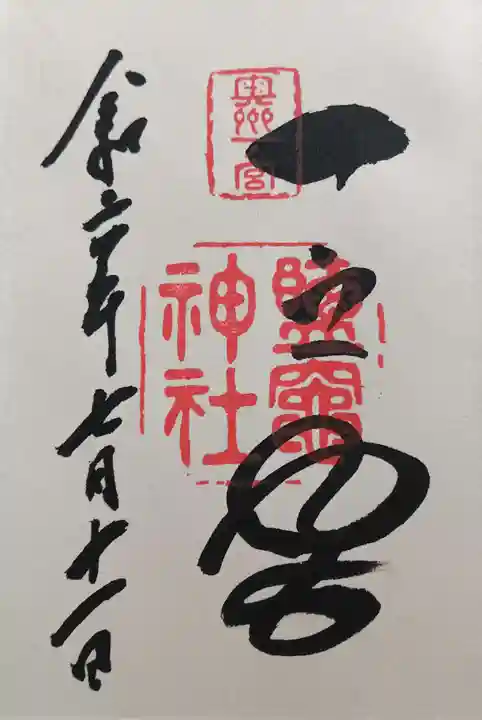 奥州一宮
鹽竈神社
一宮
令和六年七月十一日